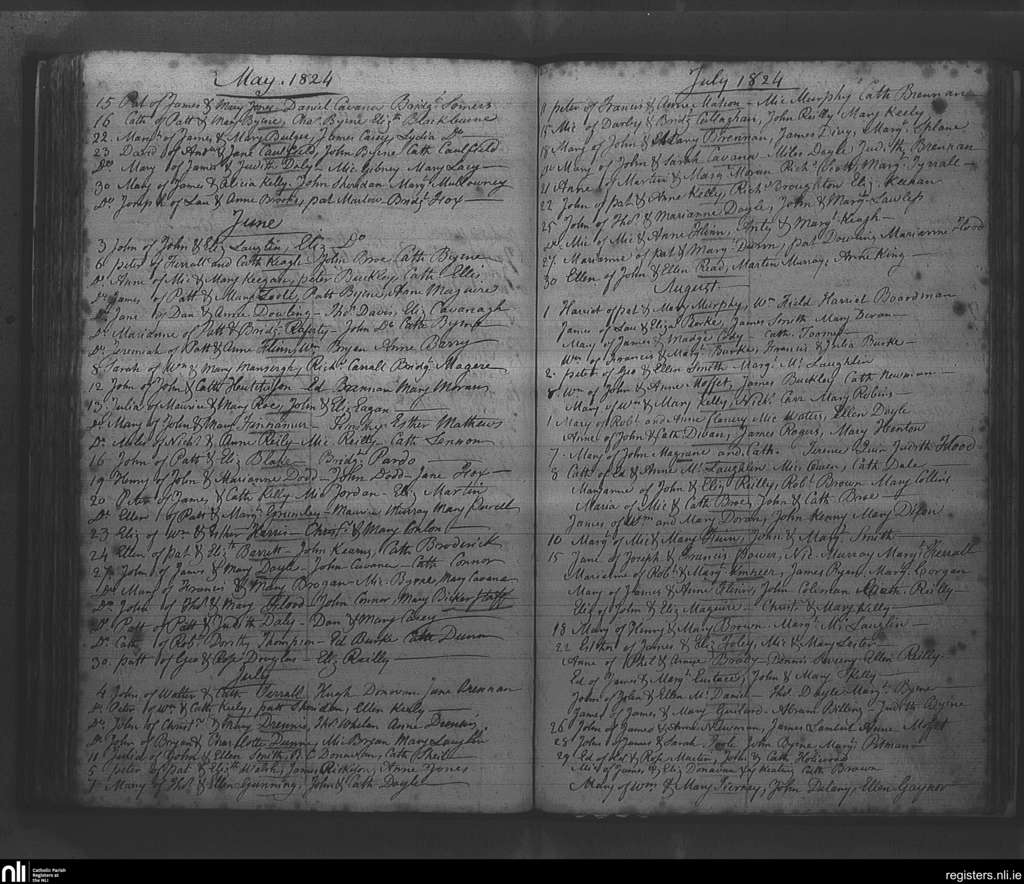 May. 1824
15 Pat of James & Mary Jones - Daniel Cavana Bridgt Somers
16 Cath of Patt & Mary Byrne, Chas Byrne Elizth Blackburne
22 Margt of James & Mary Bulger, James Casey Lydia Do
23 David of Andw & Jane Caulfield, John Byrne Cath Caulfield
Do Mary of James & Judith Daly - Mic Gibney Mary Lacy
30 Mary of James & Alicia Kelly - John Sheridan Mary Mullowney
Do Joseph of Lau & Anne Brooks, pat Marlow - Bridgt Fox
June
3 John of John & Eliz Laughlin, Eliz Do
6 peter of Ferrall and Cath Keagh, John Broe, Cath Byrne
Do Anne of Mic & Mary Keegan, peter Buckley Cath Ellis
Do James of Patt & Mary Toole, Patt Byrne, Anne Maguire
Do Jane of Dan & Anne Dowling - Thos Davis, Eliz Cavanagh
Do Marianne of Patt & Bridgt Rafaty - John Do Cath Byrne
Do Jeremiah of Patt & Anne Flinn, Wm Bryan Anne Barry
8 Sarah of Wm & Mary Mansergh, Richd Carrall Bridgt Magure
12 John of John & Cath Hewtetson - Ed Brennan Mary Moran
13 Julia of Maurice & Mary Roe, John & Eliz Eagan
Do Mary of John & Mary Finnamur - Esther Mathews
Do Miles of Nichs & Anne Reily - Mic Reilly - Cath Lennon
16 John of Patt & Eliz Blake - Bridgt Pardo
19 Henry of John & Marianne Dodd - John Dodd - Jane Fox
20 Peter of James & Cath Kelly Mic Jordan - Eliz Martin
Do Ellen of Patt & Mary Gormley - Maurice Murray Mary Powell
23 Eliz of Wm & Esther Harris - Christr & Mary Conlon
24 Ellen of pat & Elizth Barrett - John Kearns, Cath Broderick
27 John of James & Mary Doyle - John Cavana - Cath Connor
Do Mary of Francis & Mary Brogan - Mic Byrne Mary Cavana
Do John of Thos & Mary Flood - John Connor, Mary Bickerstaff
Do Patt of Patt & Judith Daly - Dan & Mary Casey
Do Cath of Robt Dorithy Thompson - Ed Burke Cath Dunn
30 patt of Geo & Rose Douglas - Eliz Reilly
July
4 John of Walter & Cath Ferrall, Hugh Donovan, Jane Brennan
Do Peter of Wm & Cath Keily, patt Shenlan, Ellen Keily
Do John of Christr & Mary Drennin, Thos Whelan Anne Drennin
Do John of Bryan & Charlotte Dunne, Mic Bryan Mary Laughlin
11 Julia of John & Ellen Smith, Donnickan, Cath Sheil
5 peter of pat & Elizth Welsh, James Rickison, Anne Jones
7 Mary of Thos & Ellen Gunning, John & Cath Doyle
July 1824
11 peter of Francis & Anne Matson - Mic Murphy Cath Brennan
15 Mic of Darby & Bridgt Callaghan, John Reilly Mary Keely
18 Mary of John & Mary Brennan, James Divy, Margt Splane
20 Mary of John & Sarah Cavana Miles Doyle Judith Brennan
21 Anne of Martin & Margt Moran Richd Margt Tyrall
22 John of pat & Anne Kelly, Richd Broughton Eliz. Keenan
25 John of Thos & Marianne Doyle, John & Margt Lawless
Do Mic of Mic & Anne Flinn, Anty & Margt Keagh
27 Marianne of pat & Mary Dunn, pat Dowling Marianne Flood
30 Ellen of John & Ellen Read, Martin Murray, Anne King
August
1 Harriet of pat & Mary Murphy, Wm Field Harriet Boardman
James of Lau & Eliza Burke, James Smith Mary Devan
Mary of James & Madge Edy - Cath. Toomey
Wm of Francis & Margt Burke, Francis & Julia Burke
2 peter of Geo & Ellen Smith Margt McLaughlin
8 Wm of John & Anne Moffet, James Buckley Cath Newman
Mary of Wm & Mary Kelly, Nichs Carr Mary Robins
1 Mary of Robt and Anne Clancey Mic Waters, Ellen Doyle
Anne of John & Cath Diban, James Rogers, Mary Henton
7 Mary of John Magrane and Cath. Terence Quin Judith Flood
8 Cath of Ed & Anne McLaughlin Mic Owen, Cath Dale
Maryanne of John & Eliz Reilly, Robt Brown Mary Collins
Maria of Mic & Cath Broe, John & Cath Broe
James of Wm and Mary Doran, John Kenny Mary Dixon
10 Mary of Mic & Mary Flinn, John & Mary Smith
15 Jane of Joseph & Francis Bower, Nic. Murray Mary Ferrall
Marianne of Robt & Mary, James Ryan. Margt Gorgan
Mary of James & Anne Flinn, John Coleman & Cath. Reilly
Eliz of John & Eliz Maguire - Christ & Mary Kelly
18 Mary of Henry & Mary Brown. Margt McLauglin
22 Esther of James & Eliz Foley, Mic & Mary Lester
Anne of Phil & Brady - Dennis Ellen Reilly
Ed of James & Margt Eustace, John & Mary Kelly
John of John & Ellen McDaniel - Thos. Doyle Mary Byrne
James of James & Mary Judith Byrne
26 John of James & Anne Newman, James Anne Moffet
28 John of James & Sarah Toole John Byrne Margt Pitman
29 Ed of Ed & Rose Martin, John & Cath Holiwood
Mic of James & Eliz Donavan Keating Cath Brown
Mary of Wm & Mary Tierney, John Delany, Ellen Gaynor
nli
Catholic Parish
Registers at
the NLI
registers.nli.ie